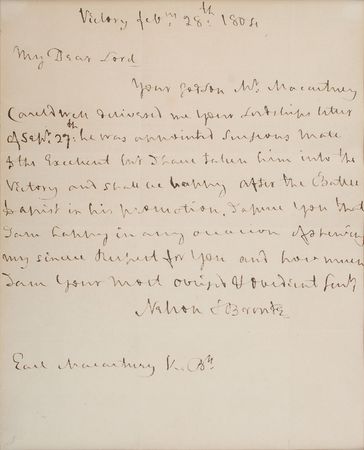 Victory feb.ry 28.th 1804
My Dear Lord
Your godson Mr. Macartney
Cauldwell delivered me your Lordships letter
of Sept. 27.th he was appointed Surgeons Mate
to the Excellent but I have taken him into the
Victory and shall be happy after the Battle
to assist in his promotion, I assure you that
I am happy in any occasion of shewing
my sincere Respect for you and how much
I am Your most obliged & obedient Servt
Nelson & Bronte
Earl Macartney K. B.